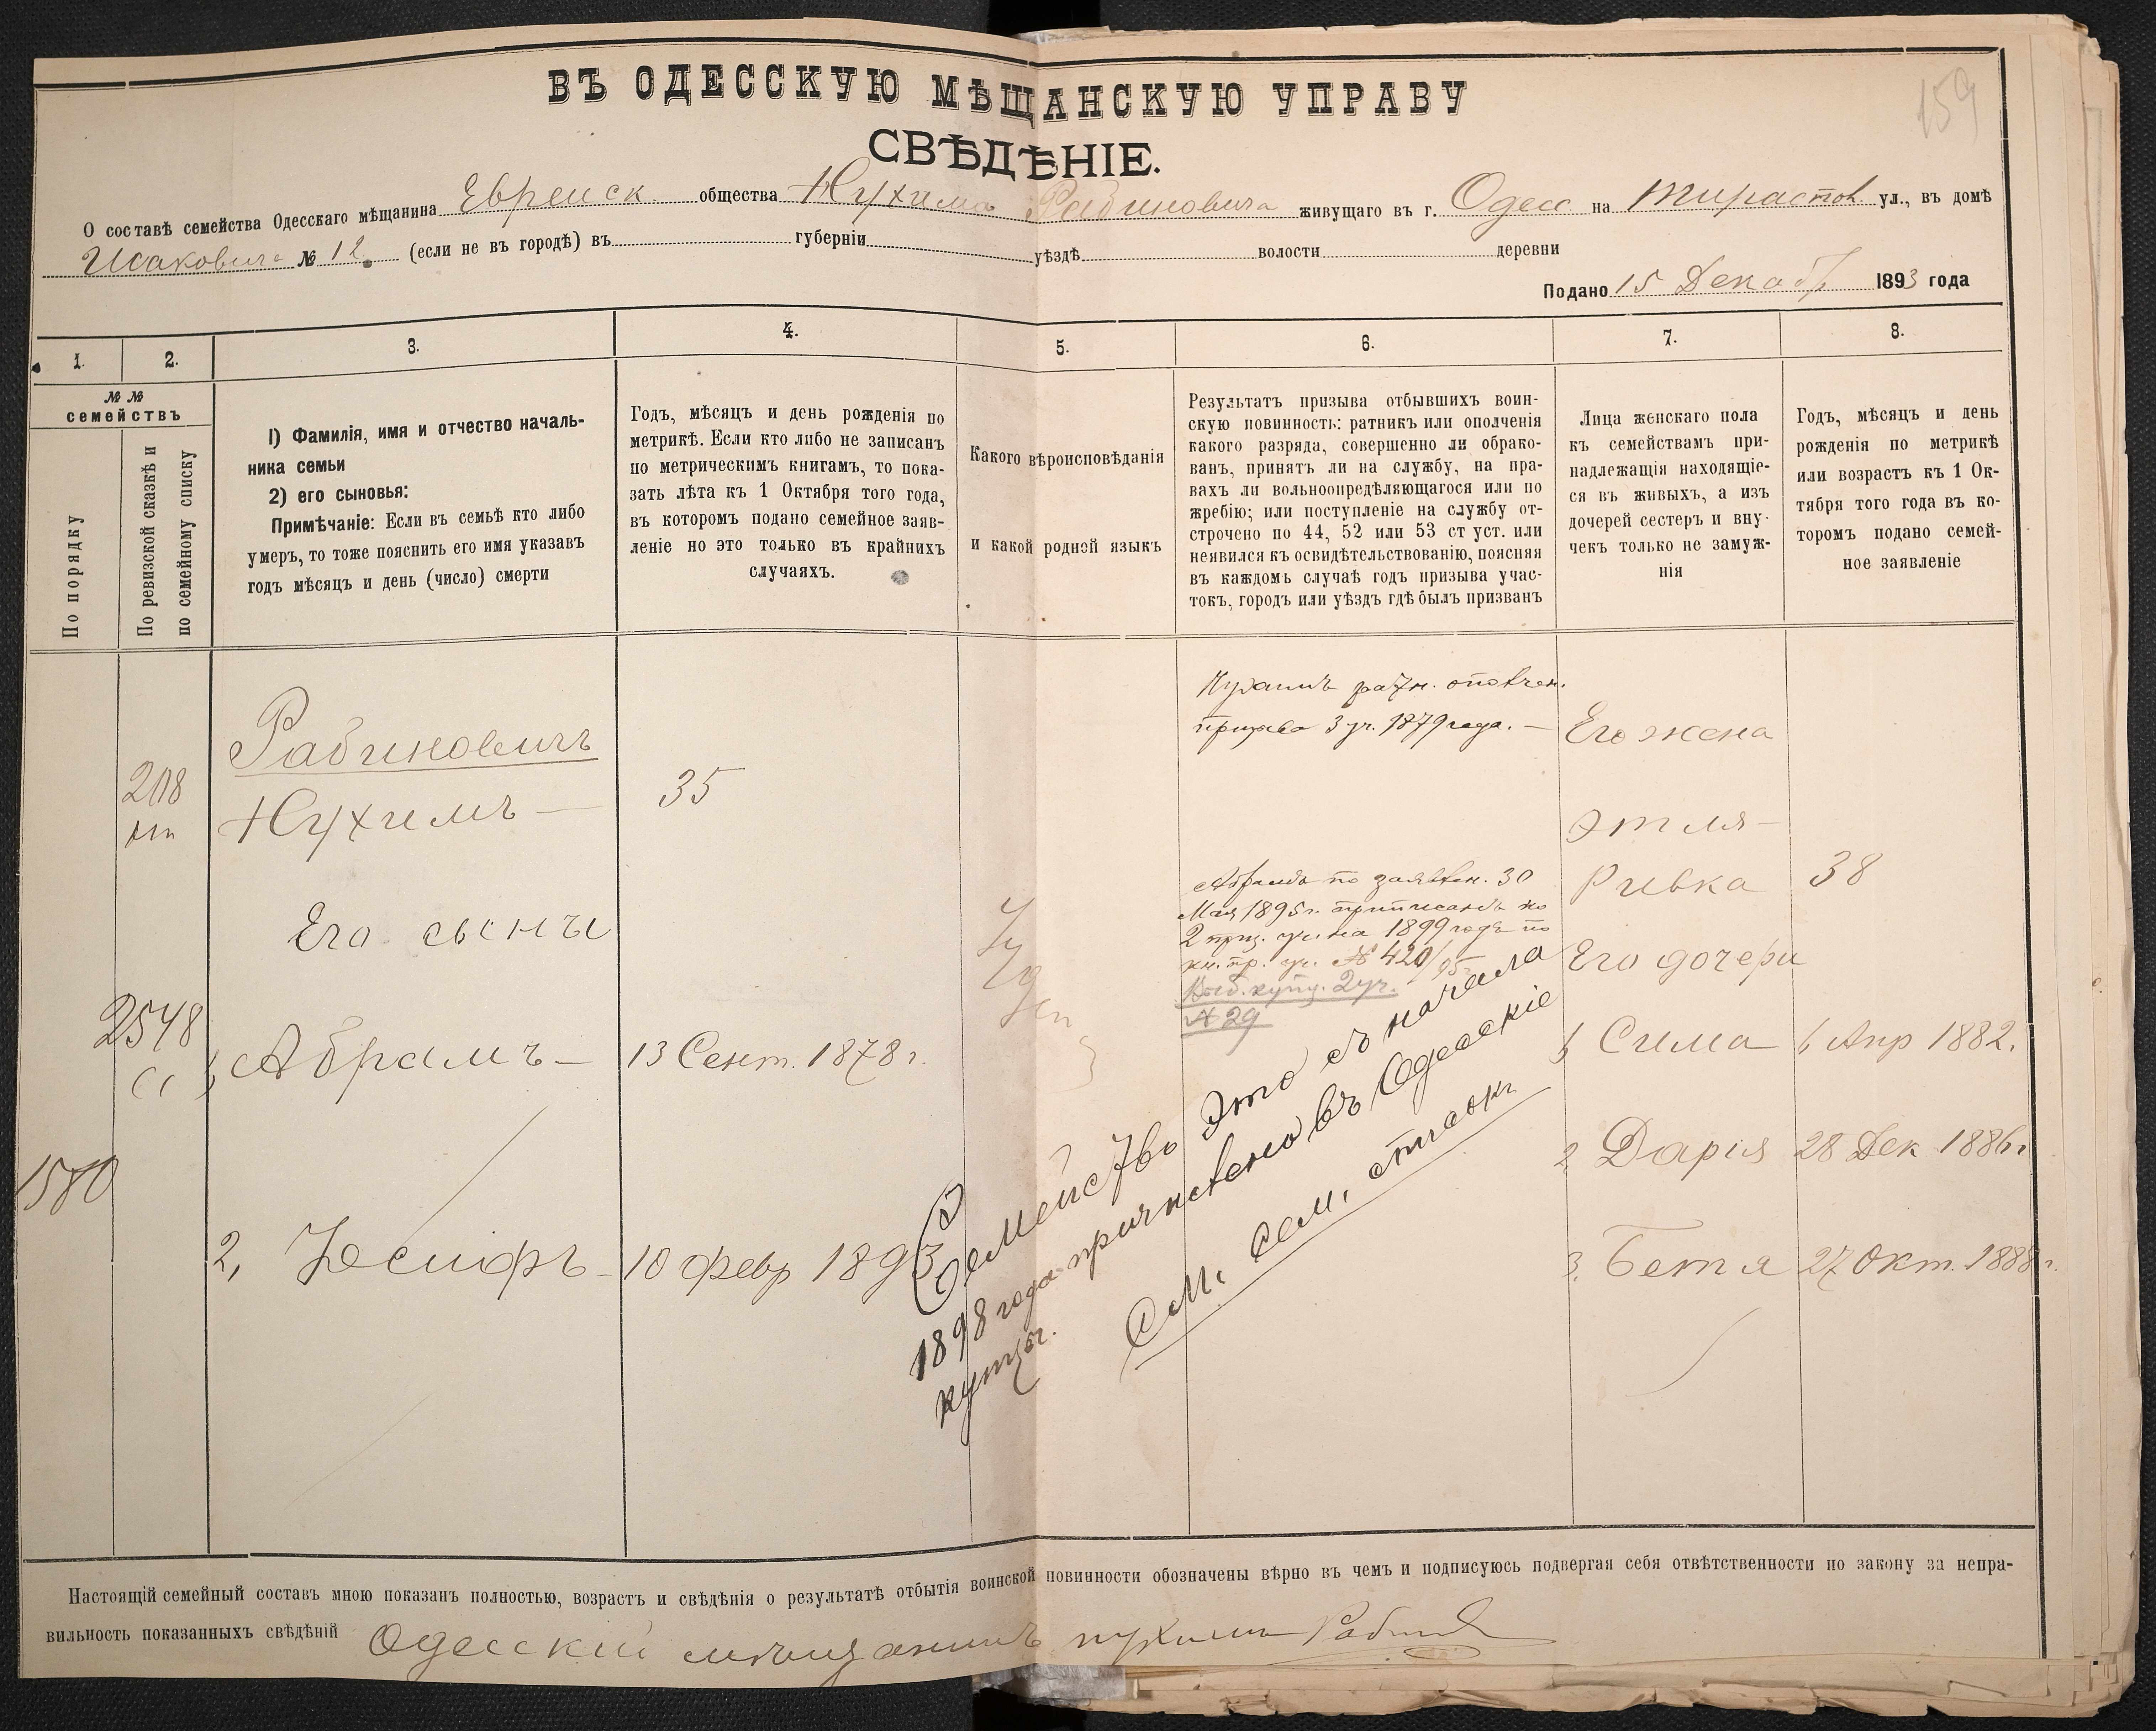 159
ВЪ ОДЕССКУЮ МѢЩАНСКУЮ УПРАВУ
СВѢДѢНІЕ.
О составѣ семейства Одесскаго мѣщанина Еврейск. общества Нухима Рабиновича живущаго въ г. Одесс на Тираспол ул., въ домѣ
Исаковича № 12. (если не въ городѣ) въ губерніи уѣздѣ волости деревни
Подано 15 Декабр 1893 года
1. 2. 3. 4. 5. 6. 7. 8.
№ №
семействъ
По порядку
По ревизской сказкѣ и
по семейному списку
1) Фамилія, имя и отчество началь-
ника семьи
2) его сыновья:
Примѣчаніе: Если въ семьѣ кто либо
умеръ, то тоже пояснить его имя указавъ
годъ мѣсяцъ и день (число) смерти
Годъ, мѣсяцъ и день рожденія по
метрикѣ. Если кто либо не записанъ
по метрическимъ книгамъ, то пока-
зать лѣта къ 1 Октября того года,
въ которомъ подано семейное заяв-
леніе но это только въ крайнихъ
случаяхъ.
Какого вѣроисповѣданія
и какой родной языкъ
Результатъ призыва отбывшихъ воин-
скую повинность: ратникъ или ополченія
какого разряда, совершенно ли обрако-
ванъ, принятъ ли на службу, на пра-
вахъ ли вольноопредѣляющагося или по
жребію; или поступленіе на службу от-
строчено по 44, 52 или 53 ст уст. или
неявился къ освидѣтельствованію, поясняя
въ каждомъ случаѣ годъ призыва учас-
токъ, городъ или уѣздъ гдѣ былъ призванъ
Лица женскаго пола
къ семействамъ при-
надлежащія находящіе-
ся въ живыхъ, а изъ
дочерей сестеръ и вну-
чекъ только не замуж-
нія
Годъ, мѣсяцъ и день
рожденія по метрикѣ
или возрастъ къ 1 Ок-
тября того года въ ко-
торомъ подано семей-
ное заявленіе
208
Рабиновичъ
Нухимъ — 35
Его сыны
2548
1, Абрамъ — 13 Сент. 1878 г.
1580
2, Іосифъ — 10 февр 1893
Нухимъ ратн. ополчен.
призыва 3 уч. 1879 года. —
Абрамъ по заявлен. 30
Мая 1895 г. приписанъ ко
2 приз. уч. на 1899 годъ по
кн. пр. уч. № 420/95
купц. 2 уч.
№ 29
Семейство это съ начала
1898 года причислено въ Одесскіе
купцы.
См. сем. списокъ
Его жена
Этля —
Ривка 38
Его дочери
1, Сима 6 Апр 1882.
2, Дарія 28 Дек 1886 г
3. Бетя 27 Окт. 1888 г.
Настоящій семейный составъ мною показанъ полностью, возрастъ и свѣдѣнія о результатѣ отбытія воинской повинности обозначены вѣрно въ чемъ и подписуюсь подвергая себя отвѣтственности по закону за непра-
вильность показанныхъ свѣдѣній Одесскій мѣщанинъ нухимъ Рабинов